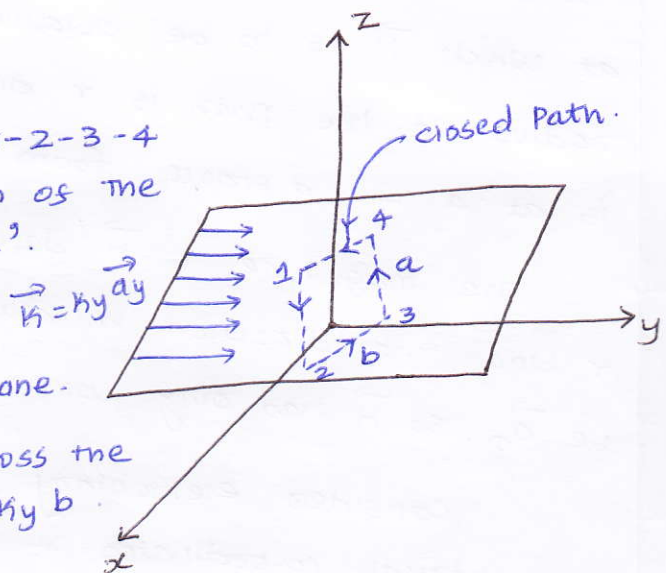 -2-3-4
of the
'.
K = Ky ay
ane.
oss the
Ky b
z
closed Path.
4
1
a
3
b
2
y
x